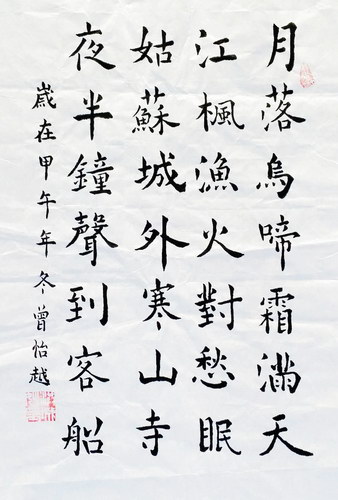 月落烏啼霜滿天
江楓漁火對愁眠
姑蘇城外寒山寺
夜半鐘聲到客船
歲在甲午年冬曾怡越